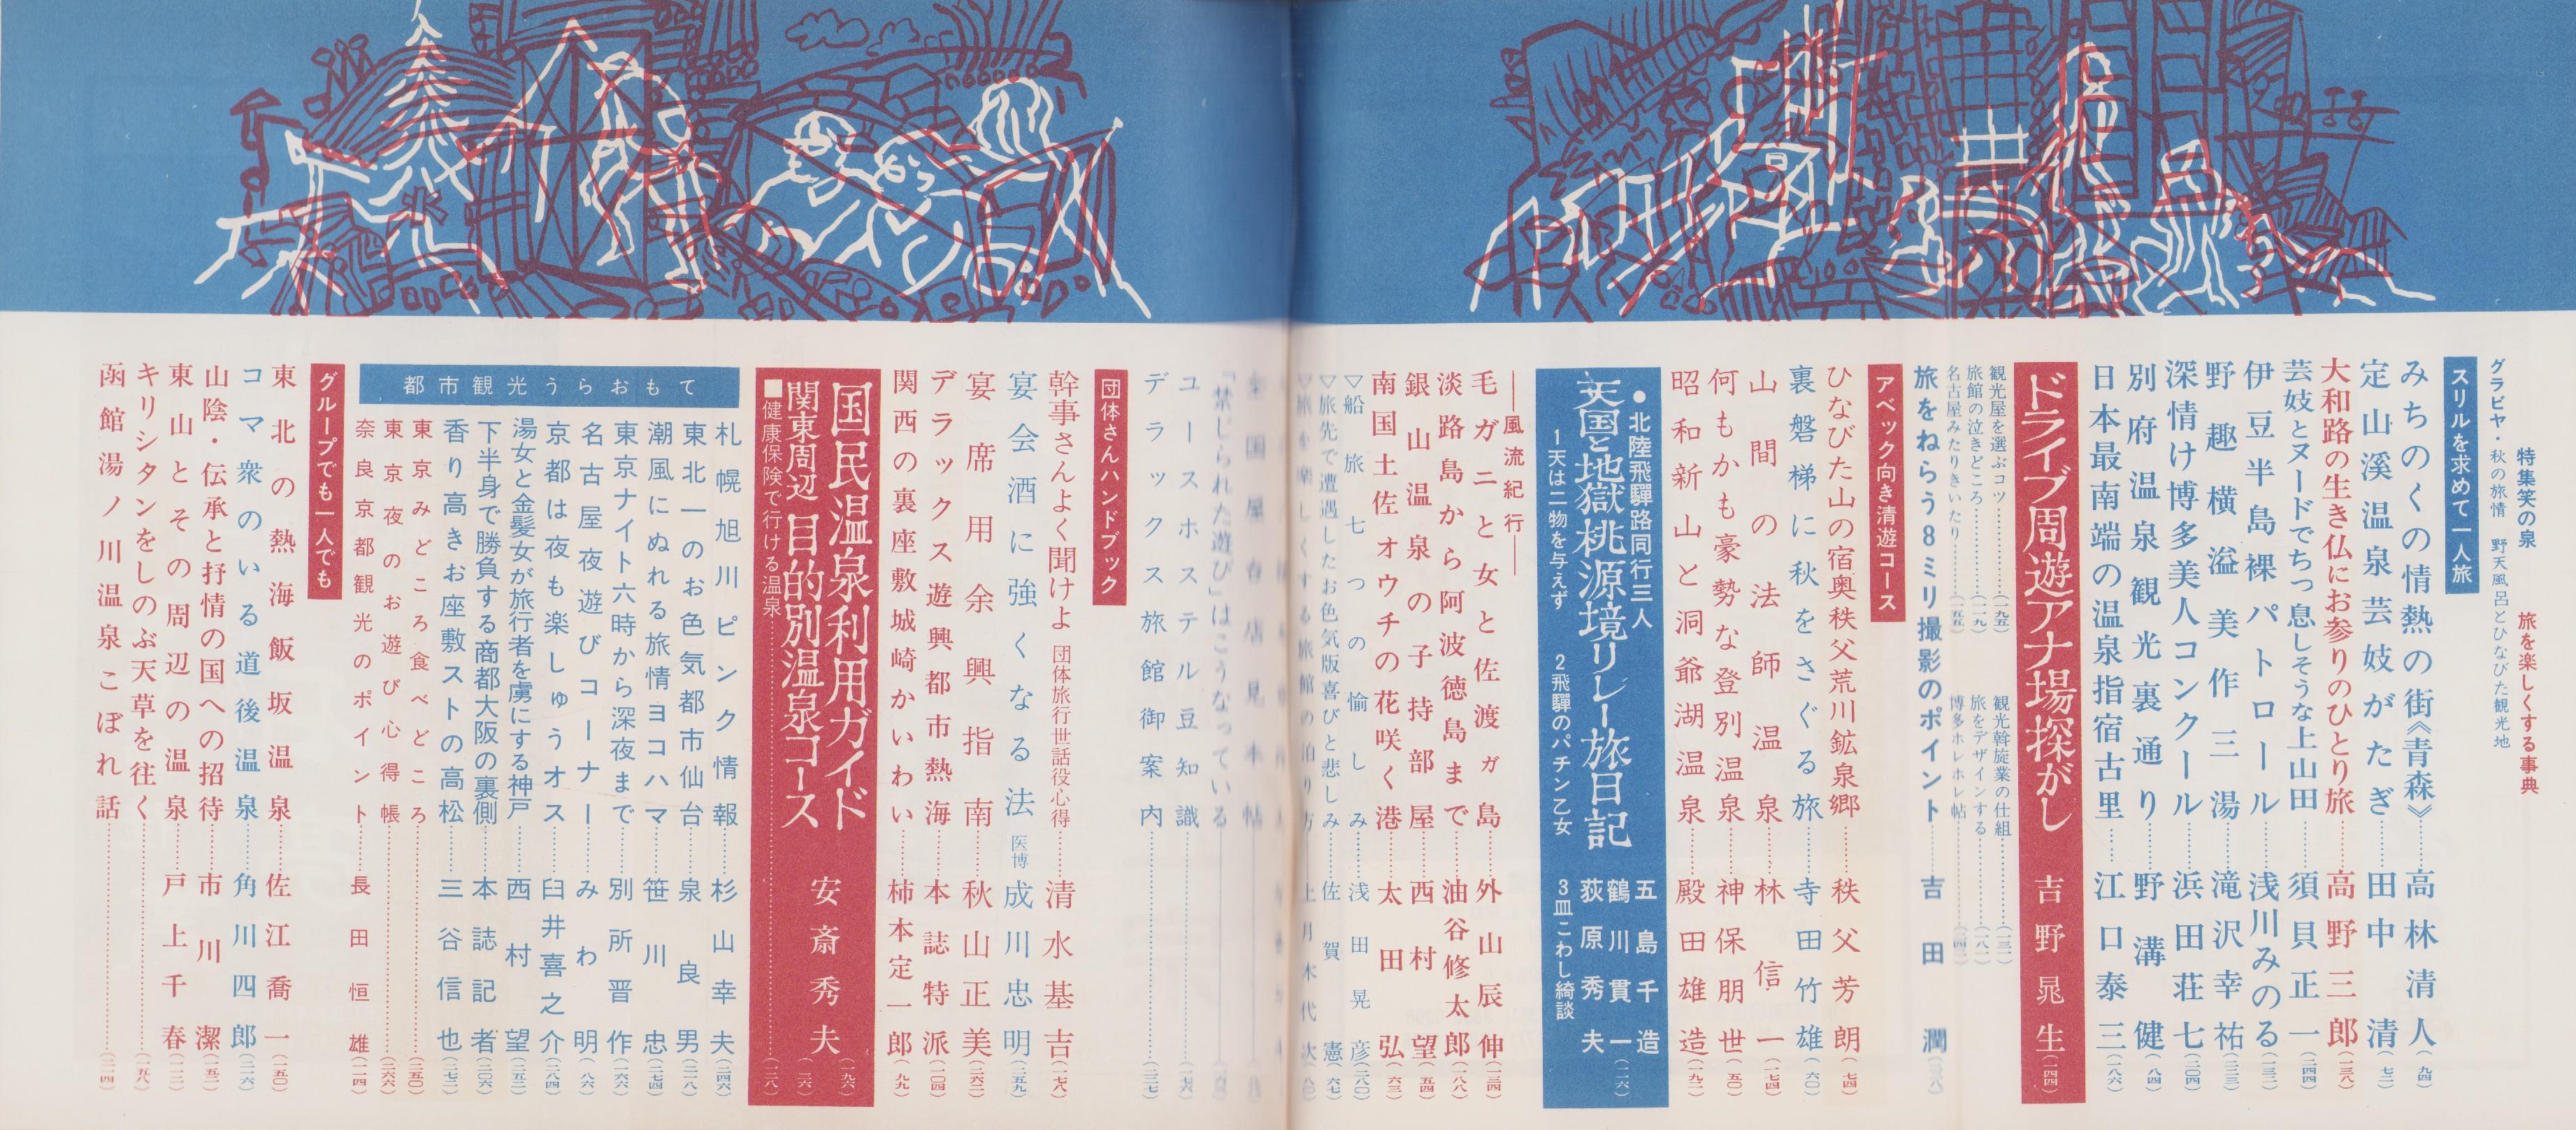 特集笑の泉　旅を楽しくする事典
グラビヤ・秋の旅情　野天風呂とひなびた観光地
スリルを求めて一人旅
みちのくの情熱の街《青森》……高林清人（九四）
定山溪温泉芸妓がたぎ……田中清（七二）
大和路の生き仏にお参りのひとり旅……高野三郎（一三八）
芸妓とヌードでちっ息しそうな上山田……須貝正一（二四四）
伊豆半島裸パトロール……浅川みのる（一三二）
野趣横溢美作三湯……滝沢幸祐（二三三）
深情け博多美人コンクール……浜田荘七（二〇四）
別府温泉観光裏通り……野溝健（八四）
日本最南端の温泉指宿古里……江口泰三（二八六）
ドライブ周遊アナ場探がし　吉野晃生（一四四）
観光屋を選ぶコツ……（一九五）　観光斡旋業の仕組……（一三一）
旅館の泣きどころ……（一一九）　旅をデザインする……（一八一）
名古屋みたりきいたり……（一五五）　博多ホレホレ帖……
旅をねらう８ミリ撮影のポイント……吉田潤
アベック向き清遊コース
ひなびた山の宿奥秩父荒川鉱泉郷……秩父芳朗（七四）
裏磐梯に秋をさぐる旅……寺田竹雄（六〇）
山間の法師温泉……林信一（一七四）
何もかも豪勢な登別温泉……神保朋世（五〇）
昭和新山と洞爺湖温泉……殿田雄造（一九二）
●北陸飛驒路同行三人
天国と地獄桃源境リレー旅日記
1天は二物を与えず　2飛驒のパチン乙女　3皿こわし綺談
五島千造
鶴川貫一
荻原秀夫（一二六）
――風流紀行――
毛ガニと女と佐渡ガ島……外山辰伸（一三四）
淡路島から阿波徳島まで……油谷修太郎（一八八）
銀山温泉の子持部屋……西村望（五四）
南国土佐オウチの花咲く港……太田弘（六三）
▽船旅七つの愉しみ……浅田晃彦（二八〇）
▽旅先で遭遇したお色気版喜びと悲しみ……佐賀憲（六七）
▽旅を楽しくする旅館の泊り方……上月木代次
「禁じられた遊び」はこうなっている
ユースホステル豆知識……
デラックス旅館御案内……（二三七）
団体さんハンドブック
幹事さんよく聞けよ　団体旅行世話役心得……清水基吉（一七八）
宴会酒に強くなる法　医博　成川忠明（二五九）
宴席用余興指南……秋山正美（二六二）
デラックス遊興都市熱海……本誌特派（一〇四）
関西の裏座敷城崎かいわい……柿本定一郎（九九）
国民温泉利用ガイド（一九六）
関東周辺　目的別温泉コース　安斎秀夫（三六）
■健康保険で行ける温泉……（一二八）
都市観光うらおもて
札幌旭川ピンク情報……杉山幸夫（二四六）
東北一のお色気都市仙台……泉良男（二一八）
潮風にぬれる旅情ヨコハマ……笹川忠（二七四）
東京ナイト六時から深夜まで……別所晋作（一六六）
名古屋夜遊びコーナー……みわ明（八六）
京都は夜も楽しゅうオス……臼井喜之介（二八四）
湯女と金髪女が旅行者を虜にする神戸……西村望（二五二）
下半身で勝負する商都大阪の裏側……本誌記者（二〇六）
香り高きお座敷ストの高松……三谷信也（二七二）
東京みどころ食べどころ……（二五〇）
東京夜のお遊び心得帳……（二六六）
奈良京都観光のポイント……長田恒雄（一一四）
グループでも一人でも
東北の熱海飯坂温泉……佐江喬一（一五〇）
コマ衆のいる道後温泉……角川四郎（二一六）
山陰・伝承と抒情の国への招待……市川潔（一五二）
東山とその周辺の温泉……戸上千春（一一二）
キリシタンをしのぶ天草を往く……（一五八）
函館湯ノ川温泉こぼれ話……（二一四）